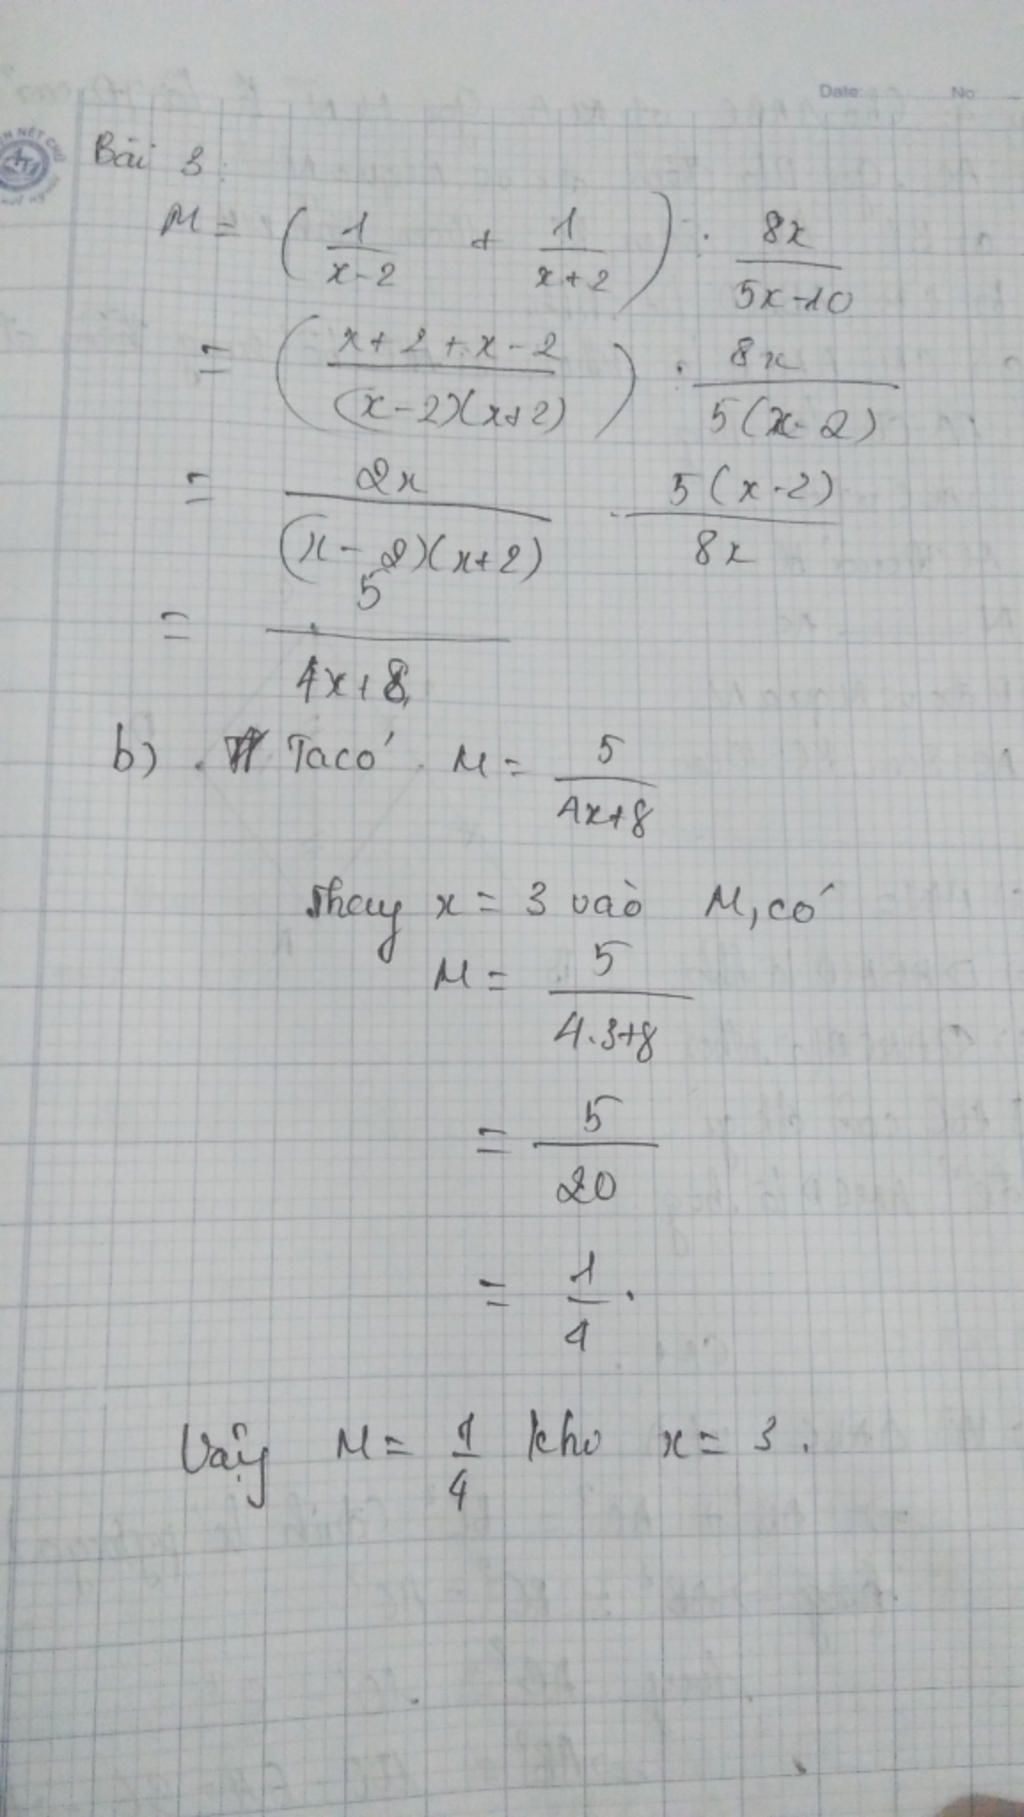 Date: No
N NÉT CHỮ
Bài 3:
M = (1/(x-2) + 1/(x+2)) : 8x/(5x-10)
= ((x+2+x-2)/((x-2)(x+2))) : 8x/(5(x-2))
= 2x/((x-2)(x+2)) . 5(x-2)/8x
= 5/(4x+8)
b) Ta có M = 5/(4x+8)
Thay x = 3 vào M, có
M = 5/(4.3+8)
= 5/20
= 1/4.
Vậy M = 1/4 khi x = 3.